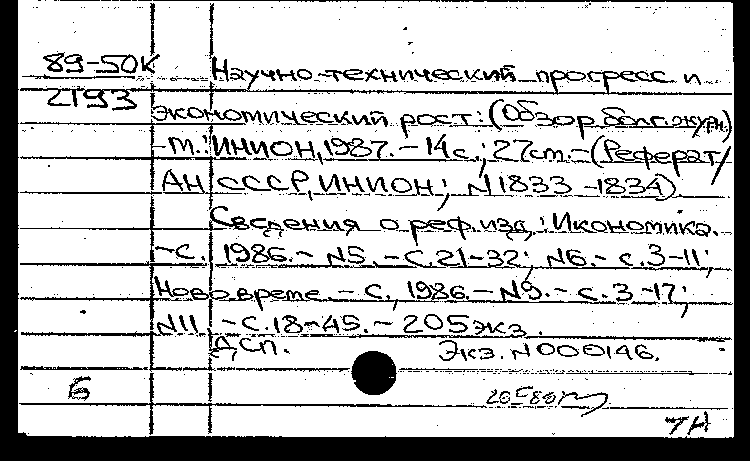 89-50к Научно-технический прогресс и
2193 экономический рост: (Обзор болг. журн)
-М.: ИНИОН, 1987. - 14с.; 27см. - (Реферат/
АН СССР, ИНИОН; N1833-1834).
Сведения о реф.изд.: Икономика.
-С. 1986. - N5. - С.21-32; N6. - с.3-11;
Ново време. - С., 1986. - N9. - с.3-17;
N11. - с.18-45. - 205экз.
ДСП. Экз. N000146.
Б